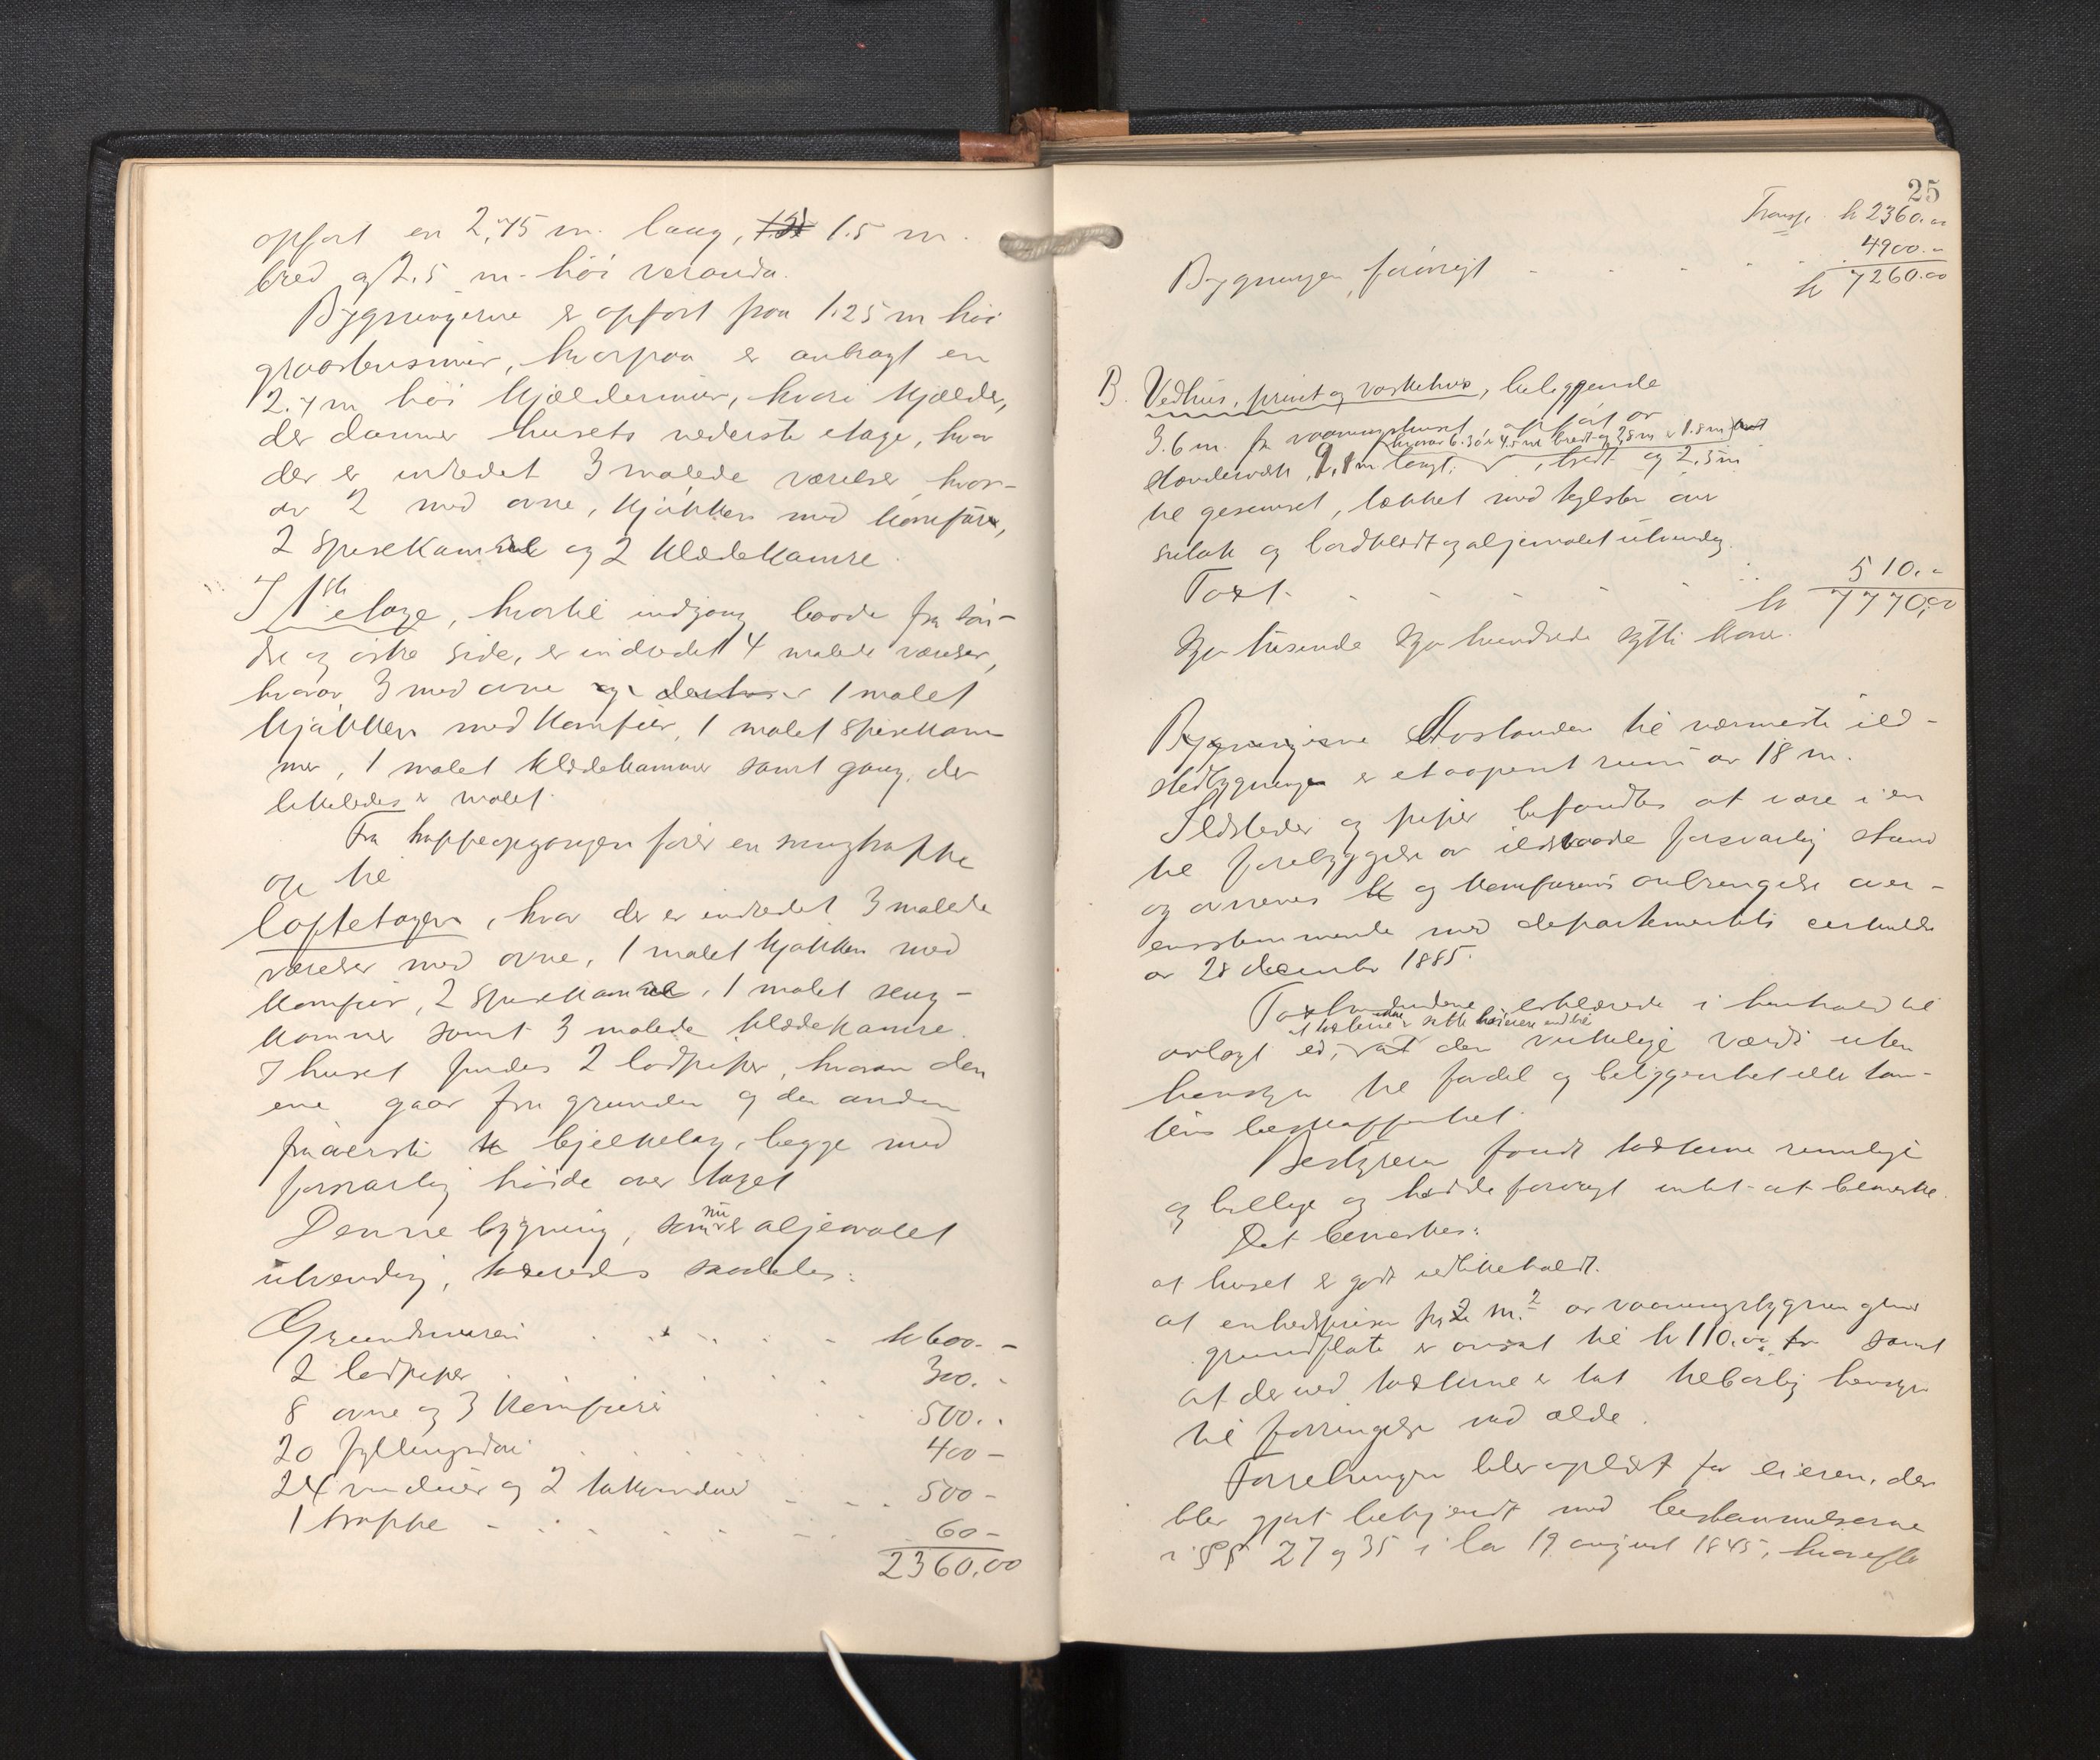 opført en 2,75 m. lang, 1.5 m.
bred og 2.5 m. høi veranda.
Bygningerne er opført paa 1.25 m høi
graastensmur, hvorpaa er anbragt en
2.4 m høi kjældermur, hvori kjælder,
der danner husets nederste etage, hvor
der er indredet 3 malede værelser, hvor-
av 2 med ovne, kjøkken med komfur,
2 spisekamre og 2 klædekamre.
I 1ste etage, hvortil indgang baade fra søn-
dre og østre side, er indredet 4 malede værelser,
hvorav 3 med ovne og 1 malet
kjøkken med komfur, 1 malet spisekam-
mer, 1 malet klædekammer samt gang, der
likeledes er malet.
Fra trappeopgangen fører en
op til
loftetagen, hvor der er indredet 3 malede
værelser med ovne, 1 malet kjøkken med
komfur, 2 spisekamre, 1 malet seng-
kammer samt 3 malede klædekamre.
I huset findes 2 lødpiper, hvorav den
ene gaar fra grunden og den anden
fra øverste bjelkelag, begge med
forsvarlig høide over taget
Denne bygning, som nu er oljemalet
utvendig, taxeredes saaledes:
Grundmuren kr 600.-
2 lødpiper 300.-
8 ovne og 3 komfurer 500.-
20 fyllingsdøre 400-
24 vinduer og 2 takvinduer 500-
1 trappe 60-
2360,00
25
Transp. kr 2360.00
Bygningen forøvrigt 4900.-
kr 7260.00
B. Vedhus, privet og vaskehus, beliggende
3.6 m. fra vaaningshuset opført av
hvorav 6.30 er 4.5 m bredt og 2,8 m er 1.8 m bredt
standerverk, 9,1 m langt, bredt og 2,5 m
til gesimset, tækket med teglsten over
sutak og bordklædt og oljemalet utvendig.
Taxt. 510.-
kr 7770,00
Syv tusende syv hundrede sytti kroner.
Bygningerne Avstanden til nærmeste ild-
stedbygninger er et aapent rum av 18 m.
Ildsteder og piper befandtes at være i en
til forebyggelse av ildsvaade forsvarlig stand
og ovnenes og komfurens anbringelse over-
ensstemmende med departementets cirkulær
av 28 december 1885.
Taxtmændene erklærede i henhold til
at taxterne ikke er satt høiere end til
avlagt ed, den virkelige værdi uten
hensyn til fordel og beliggenhet eller tom-
tens beskaffenhet.
Bestyreren fandt taxterne rimelige
og billige og hadde forøvrigt intet at bemerke.
Det bemerkes:
at huset er godt vedlikeholdt.
at enhedsprisen pr. m.2 av vaaningsbygningens
grundflate er ansat til kr 110.00 samt
at der ved taxterne er tat tilbørlig hensyn
til forringelse ved ælde.
Forretningen blev oplæst for eieren, der
blev gjort bekjendt med bestemmelserne
i §§ 27 og 35 i lov 19 august 1845, hvorefter